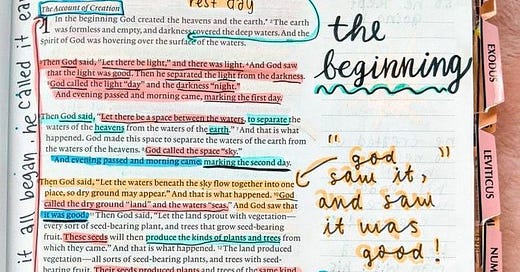 rest day
The Account of Creation
1 In the beginning God created the heavens and the earth.* ²The earth
was formless and empty, and darkness covered the deep waters. And the
Spirit of God was hovering over the surface of the waters.
³Then God said, "Let there be light," and there was light. ⁴And God saw
that the light was good. Then he separated the light from the darkness.
⁵God called the light "day" and the darkness "night."
And evening passed and morning came, marking the first day.
⁶Then God said, "Let there be a space between the waters, to separate the
waters of the heavens from the waters of the earth." ⁷And that is what
happened. God made this space to separate the waters of the earth from
the waters of the heavens. ⁸God called the space "sky."
And evening passed and morning came, marking the second day.
⁹Then God said, "Let the waters beneath the sky flow together into one
place, so dry ground may appear." And that is what happened. ¹⁰God
called the dry ground "land" and the waters "seas." And God saw that
it was good. ¹¹Then God said, "Let the land sprout with vegetation—
every sort of seed-bearing plant, and trees that grow seed-bearing
fruit. These seeds will then produce the kinds of plants and trees from
which they came." And that is what happened. ¹²The land produced
vegetation—all sorts of seed-bearing plants, and trees with seed-
bearing fruit. Their seeds produced plants and trees of the same kind.
it all began he called it
the
beginning
"god
saw it,
and saw
it was
good!"
EXODUS
LEVITICUS
NUM